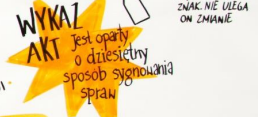 WYKAZ
AKT jest oparty
o dziesiętny
sposób sygnowania
spraw
ZNAK. NIE ULEGA
ON ZMIANIE